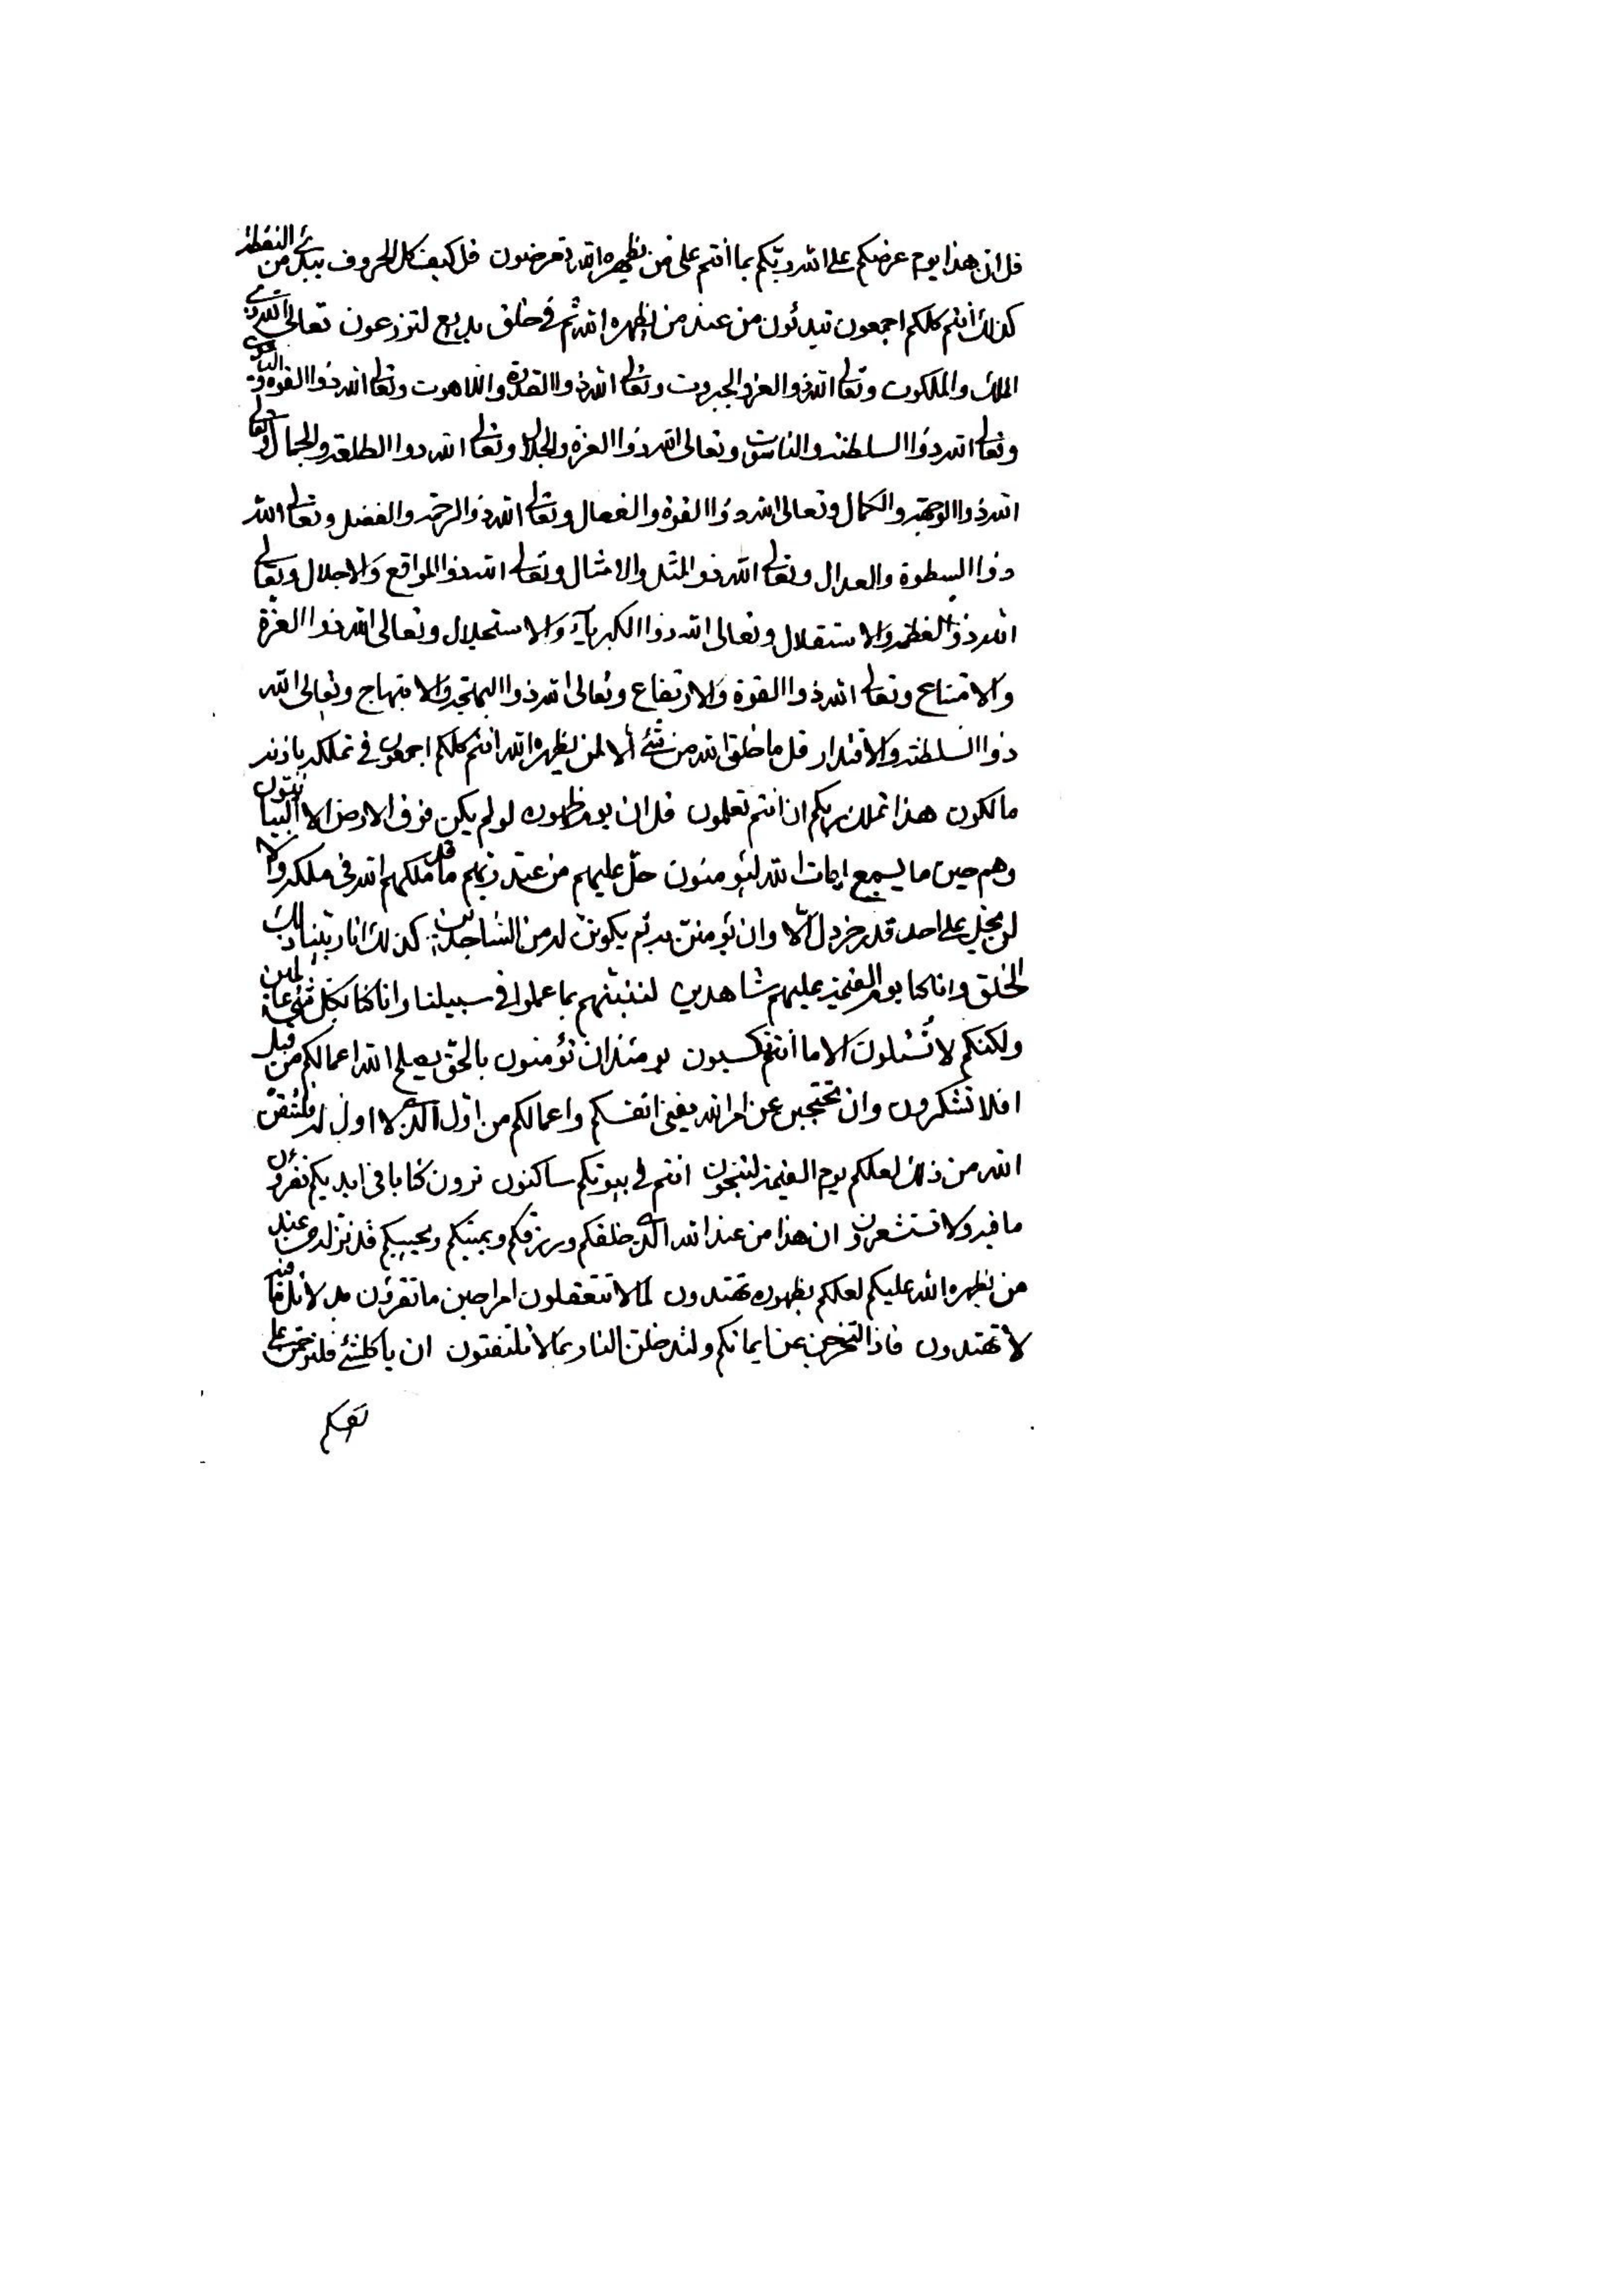 قل ان هذا يوم عرضكم على الله ربكم بما أنتم على من يظهره الله تعرضون قل كيف كل الحروف يبدئ من النقطة
كذلك أنتم كلكم اجمعون تبدئون من عند من يظهره الله ثم في خلق بديع لتزرعون تعالى الله ذي
الملك والملكوت وتعالى الله ذو العز والجبروت وتعالى الله ذوا القدرة واللاهوت وتعالى الله ذوا القوة و الياقوت
وتعالى الله ذوا السلطنة والناسوت وتعالى الله ذوا العزة والجلال وتعالى الله ذوا الطلعة والجمال وتعالى
الله ذوا الوجهة والكمال وتعالى الله ذوا القوة والفعال وتعالى الله ذو الرحمة والفضل وتعالى الله
ذوا السطوة والعدال وتعالى الله ذو المثل والامثال وتعالى الله ذوا المواقع والاجلال وتعالى
الله ذو العظمة والاستقلال وتعالى الله ذوا الكبرياء والاستجلال وتعالى الله ذوا العزة
والامتناع وتعالى الله ذوا القوة والارتفاع وتعالى الله ذوا البهجة والابتهاج وتعالى الله
ذوا السلطنة والاقتدار قل ما خلق الله من شئ الا لمن يظهره الله انتم كلكم اجمعون في تملكه باذنه
مالكون هذا تملك ربكم ان انتم تعلمون قل ان يوم ظهوره لو لم يكن فوق الارض الا البيانيون
وهم حين ما يسمع ايات الله ليؤمنون حل عليهم من عند ربهم ما قد ملكهم الله في ملكه والا
لن يحل على احد قدر خردل الا وان يؤمنن به ثم يكونن له من الساجدين كذلك انا ربينا ذلك
الخلق وانا كنا يوم القيمة عليهم شاهدين لننبئنهم بما عملوا في سبيلنا وانا كنا بكل شئ عالمين
ولكنكم لا تسئلون الا ما أنتم تكسبون يومئذ ان تؤمنون بالحق يصلح الله اعمالكم من قبل
افلا تشكرون وان تحتجبن عن امر الله يفنى انفسكم واعمالكم من اول الذي لا اول له فلتتقن
الله من ذلك لعلكم يوم القيمة لتنجون انتم في بيوتكم ساكنون ترون كتابا في ايديكم تقرؤن
ما فيه ولا تستشعرون ان هذا من عند الله الذي خلقكم ورزقكم ويميتكم ويحييكم قد نزله من عند
من يظهره الله عليكم لعلكم بظهوره تهتدون لما لا تتعقلون امرا حين ما تقرؤن بدلائل ما فيه
لا تهتدون فاذا لتخرجن عن ايمانكم ولتدخلن النار بما لا تلتفتون ان يا كلشئ فلترحمن على